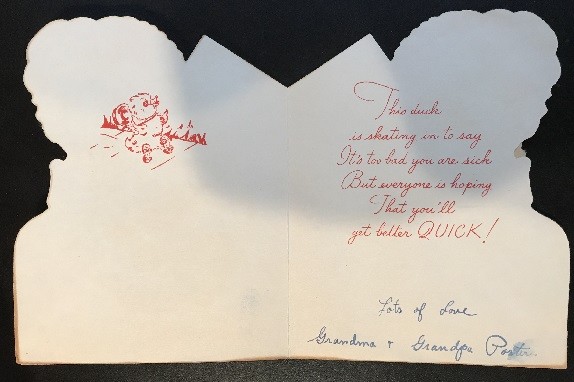 This duck
is skating in to say
It's too bad you are sick
But everyone is hoping
That you'll
get better QUICK!
Lots of Love
Grandma + Grandpa Porter